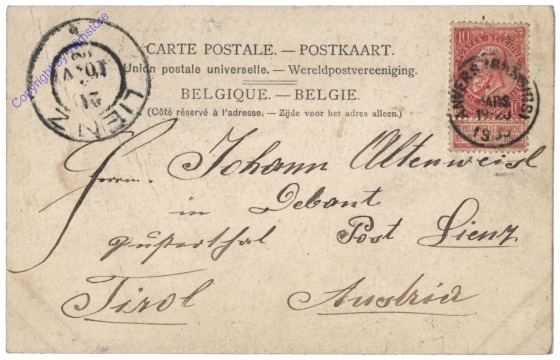 CARTE POSTALE. — POSTKAART.
Union postale universelle. — Wereldpostvereeniging.
BELGIQUE. — BELGIE.
(Côté réservé à l'adresse. — Zijde voor het adres alleen.)
10
ANVERS
MARS
LIENZ
Herrn Johann Altenweisl
in Debant
Pusterthal Post Lienz
Tirol Austria